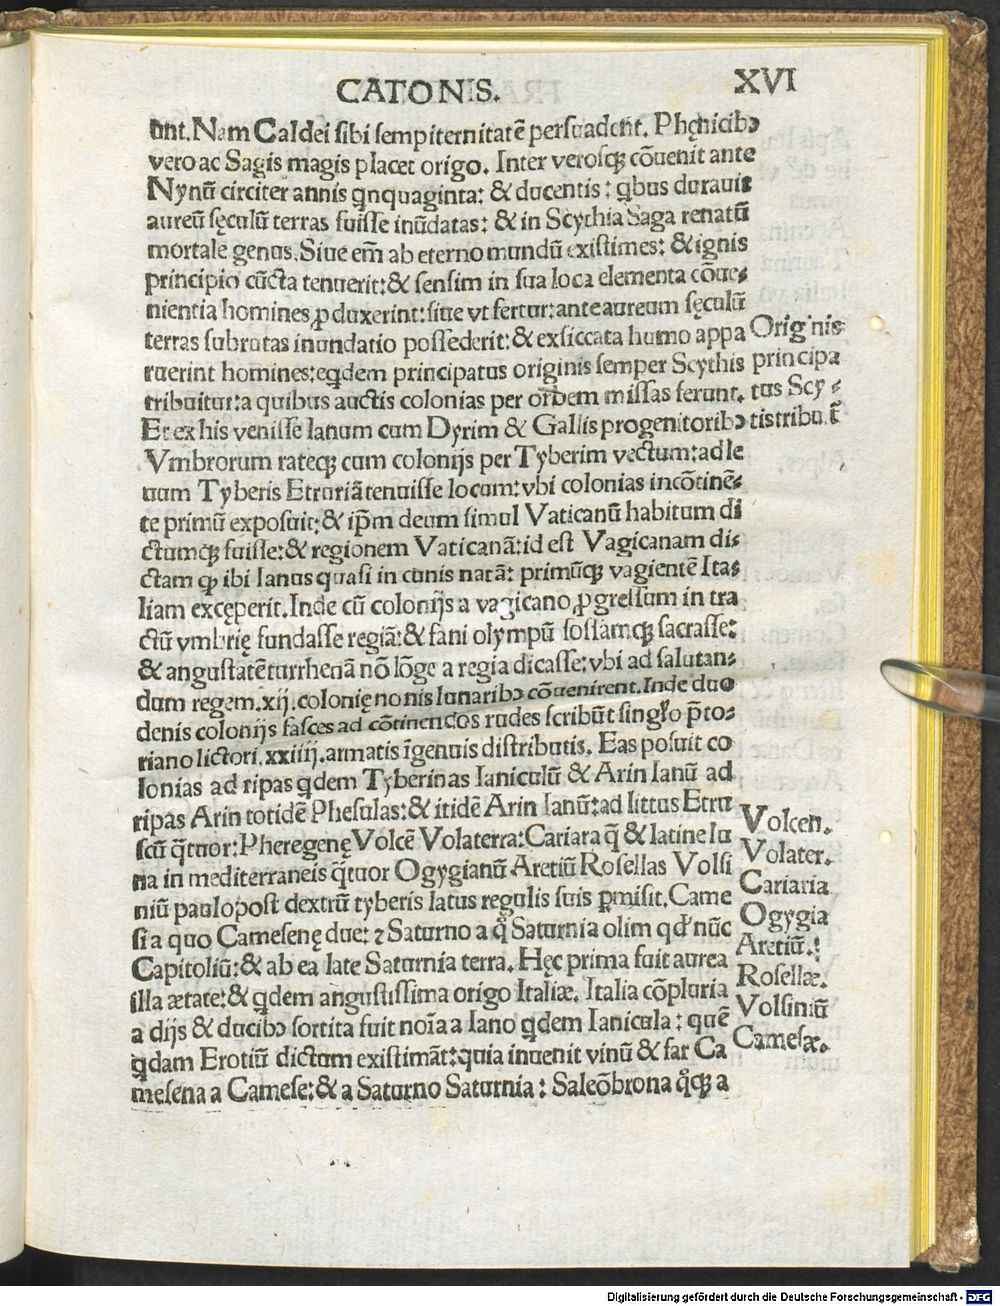 CATONIS.
XVI
unt. Nam Caldei sibi sempiternitatē persuadent. Phęnicibꝰ
vero ac Sagis magis placet origo. Inter verosqꝫ cōuenit ante
Nynū circiter annis qnquaginta: & ducentis: qbus durauit
aureū sęculū terras fuisse inūdatas: & in Scythia Saga renatū
mortale genus. Siue em̄ ab eterno mundū existimes: & ignis
principio cūcta tenuerit: & sensim in sua loca elementa cōue-
nientia homines ꝓduxerint: siue vt fertur: ante aureum sęculū
terras subrutas inundatio possederit: & exsiccata humo appa
ruerint homines: eqdem principatus originis semper Scythis
tribuitur: a quibus auctis colonias per orbem missas ferunt.
Originis
principa
tus Scy-
tis tribuit̄
Et ex his venisse Ianum cum Dyrim & Gallis progenitoribꝰ
Vmbrorum rateqꝫ cum colonijs per Tyberim vectum: ad le
uum Tyberis Etruriā tenuisse locum: vbi colonias incōtinē-
te primū exposuit: & ip̄m deum simul Vaticanū habitum di
ctumqꝫ fuisse: & regionem Vaticanā: id est Vagicanam di-
ctam qꝫ ibi Ianus quasi in cunis natā: primūqꝫ vagientē Ita-
liam excęperit. Inde cū colonijs a vagicano ꝓgressum in tra
ctū vmbrię fundasse regiā: & fani olympū fossamqꝫ sacrasse:
& angustatē turrhenā nō lōge a regia dicasse: vbi ad salutan-
dum regem .xij. colonię nonis lunaribꝰ cōuenirent. Inde duo
denis colonijs fasces ad cōtinendos rudes scribūt singlo p̄to-
riano lictori .xxiiij. armatis īgenuis distributis. Eas posuit co
lonias ad ripas qdem Tyberinas Ianiculū & Arin Ianū ad
ripas Arin totidē Phesulas: & itidē Arin Ianū: ad littus Etru
scū q̄tuor: Pheregenę Volcē Volaterra: Cariara q̄ & latine lu
na in mediterraneis q̄tuor Ogygianū Aretiū Rosellas Volsi
niū paulopost dextrū tyberis latus regulis suis ꝑmisit. Came
si a quo Camesenę due: ⁊ Saturno a q̊ Saturnia olim qd̓ nūc
Capitoliū: & ab ea late Saturnia terra. Hęc prima fuit aurea
illa ætate: & qdem angustissima origo Italiæ. Italia cōpluria
a dijs & ducibꝰ sortita fuit noīa a Iano qdem Ianicula: quē
qdam Erotiū dictum existimāt: quia inuenit vinū & far Ca
mesena a Camese: & a Saturno Saturnia: Saleōbrona q̊qꝫ a
Volcen.
Volater.
Cariaria
Ogygia
Aretiū.
Rosellæ.
Volsiniū
Camesæ.
Digitalisierung gefördert durch die Deutsche Forschungsgemeinschaft - DFG